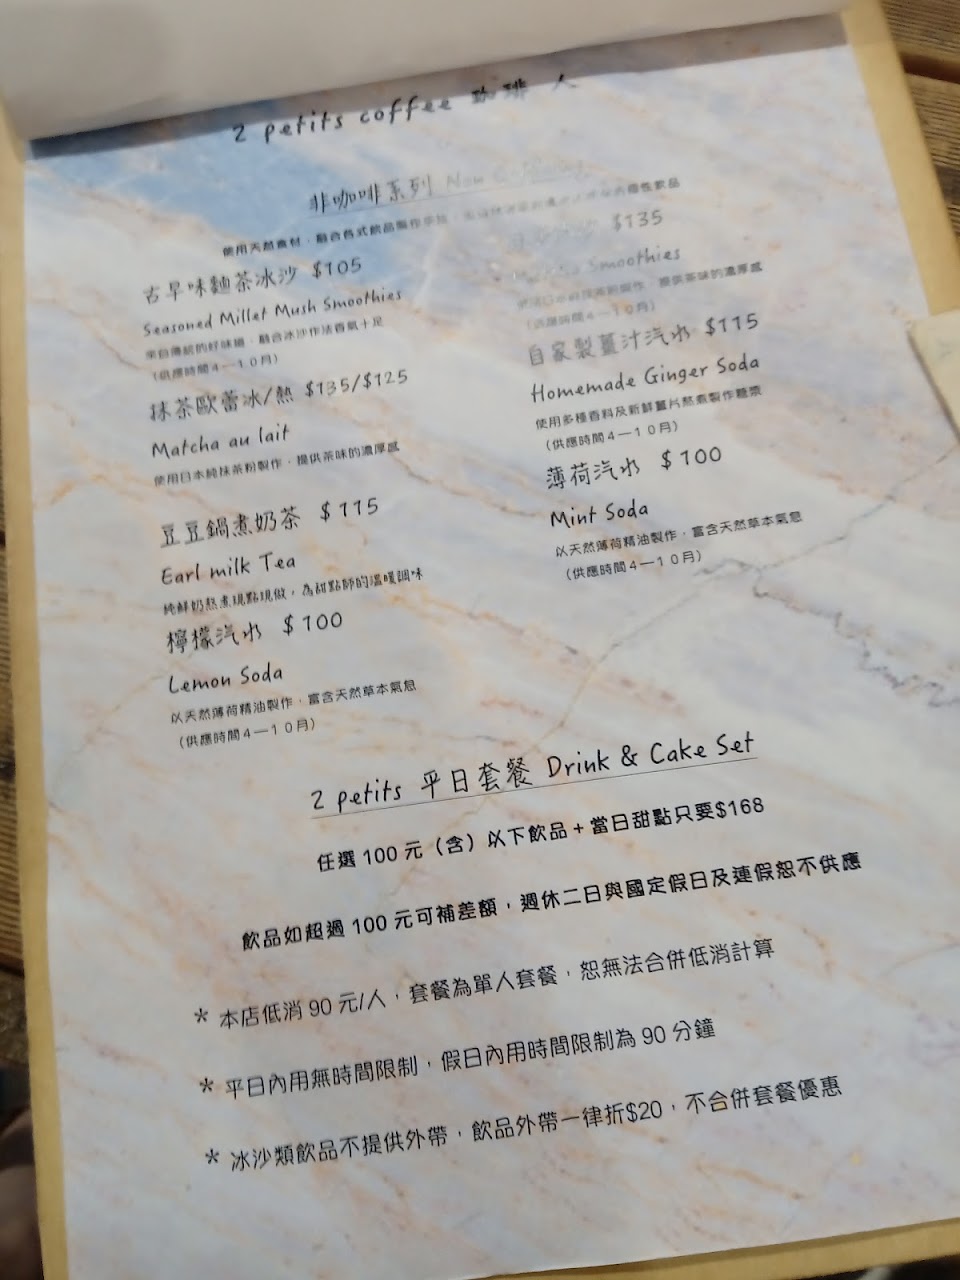 2 petits coffee 珈琲 人
非咖啡系列 Non
使用天然食材，融合各式飲品製作手法，
古早味麵茶冰沙 $105
Seasoned Millet Mush Smoothies
來自傳統的好味道，融合冰沙作法香氣十足
（供應時間4—10月）
抹茶歐蕾冰/熱 $135/$125
Matcha au lait
使用日本純抹茶粉製作，提供茶味的濃厚感
豆豆鍋煮奶茶 $115
Earl milk Tea
純鮮奶熬煮現點現做，為甜點師的溫暖調味
檸檬汽水 $100
Lemon Soda
以天然薄荷精油製作，富含天然草本氣息
（供應時間4—10月）
$135
Matcha Smoothies
使用日本純抹茶粉製作，提供茶味的濃厚感
（供應時間4—10月）
自家製薑汁汽水 $115
Homemade Ginger Soda
使用多種香料及新鮮薑片熬煮製作糖漿
（供應時間4—10月）
薄荷汽水 $100
Mint Soda
以天然薄荷精油製作，富含天然草本氣息
（供應時間4—10月）
2 petits 平日套餐 Drink & Cake Set
任選100元（含）以下飲品+當日甜點只要$168
飲品如超過100元可補差額，週休二日與國定假日及連假恕不供應
* 本店低消90元/人，套餐為單人套餐，恕無法合併低消計算
* 平日內用無時間限制，假日內用時間限制為90分鐘
* 冰沙類飲品不提供外帶，飲品外帶一律折$20，不合併套餐優惠